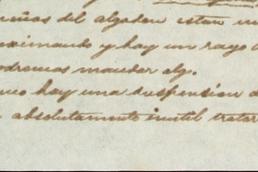 del algodon estan
oximando y hay un rayo
podremos mandar alg.
hay una suspension
absolutamente inutil tratar